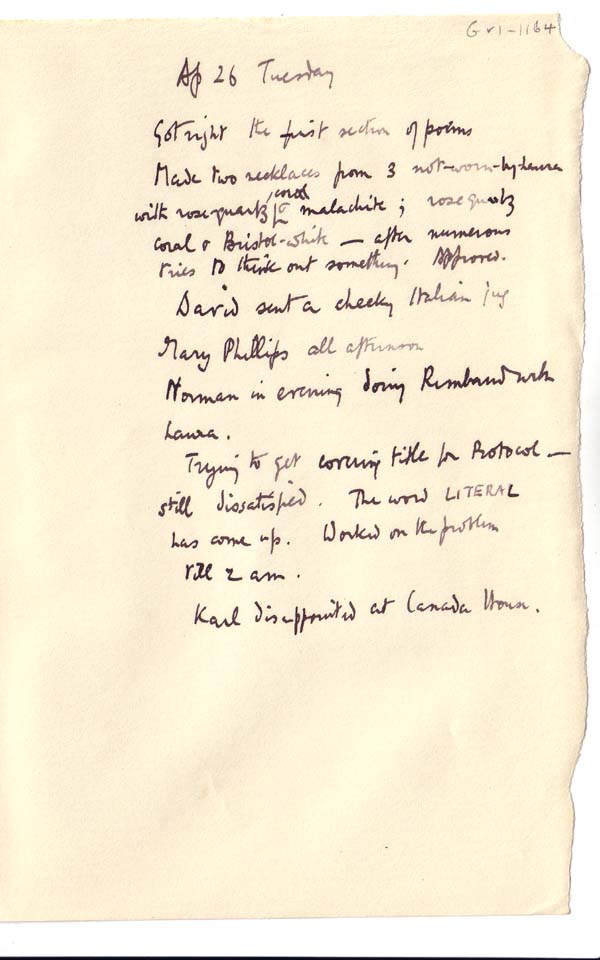 Gr1-1164
Ap 26 Tuesday
Got right the first section of poems
Made two necklaces from 3 not-worn-by-Laura
with rose-quartz, coral & malachite ; rose quartz
coral & Bristol-white — after numerous
tries to think out something. Approved.
David sent a cheeky Italian jug
Mary Phillips all afternoon
Norman in evening doing Rimbaud with
Laura.
Trying to get covering title for Protocol —
still dissatisfied. The word LITERAL
has come up. Worked on the problem
till 2 am.
Karl disappointed at Canada House.